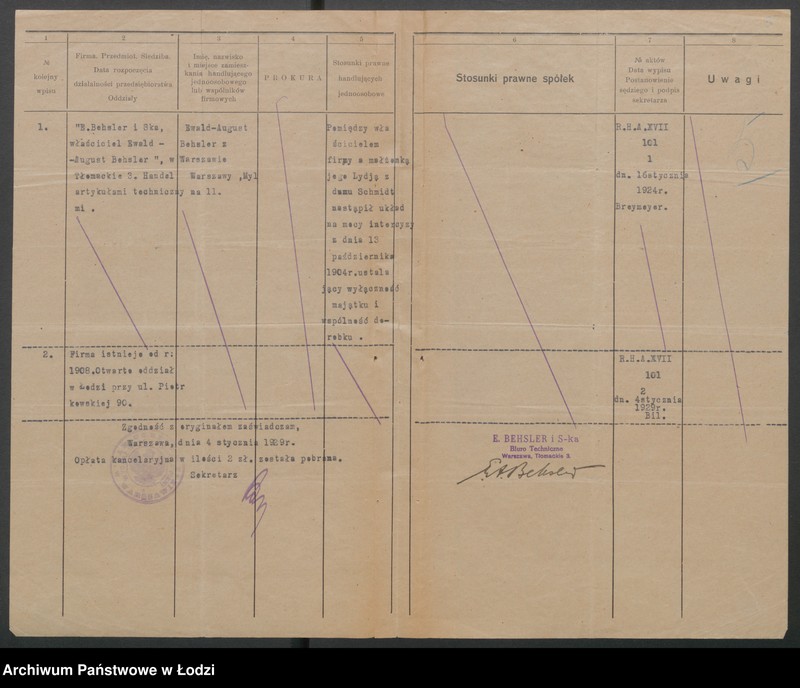 1
2
3
4
5
6
7
8
№
kolejny
wpisu
Firma. Przedmiot. Siedziba.
Data rozpoczęcia
działalności przedsiębiorstwa
Oddziały
Imię, nazwisko
i miejsce zamiesz-
kania handlującego
jednoosobowego
lub wspólników
firmowych
PROKURA
Stosunki prawne
handlujących
jednoosobowo
Stosunki prawne spółek
№ aktów
Data wypisu
Postanowienie
sędziego i podpis
sekretarza
Uwagi
1.
"E.Behsler i Ska,
właściciel Ewald -
-August Behsler ", w
Tłomackie 3. Handel
artykułami techniczny
mi .
Ewald-August
Behsler z
Warszawie
Warszawy ,Myl
na 11.
Pomiędzy wła
ścicielem
firmy a małżonką
jego Lydją z
domu Schmidt
nastąpił układ
na mocy intercyzy
z dnia 15
października
1904r.ustala
jący wyłączność
majątku i
wspólność do-
robku .
R.H.A.XVII
101
1
dn. 16stycznia
1924r.
Breymeyer.
2.
Firma istnieje od r:
1908.Otwarto oddział
w Łodzi przy ul. Piotr
kowskiej 90.
R.H.A.XVII
101
2
dn. 4stycznia
1929r.
Bil.
Zgodność z oryginałem zaświadczam,
Warszawa, dnia 4 stycznia 1929r.
Opłata kancelaryjna w ilości 2 zł. została pobrana.
Sekretarz
E. BEHSLER i S-ka
Biuro Techniczne
Warszawa, Tłomackie 3.
E.A.Behsler
Archiwum Państwowe w Łodzi